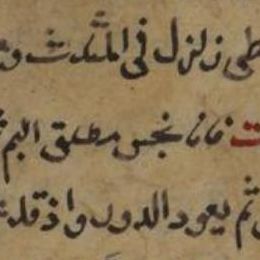 طى زلزل فى المثلث و
ت فان نجس مطلق البم
ثم يعود الدور واذ قلد